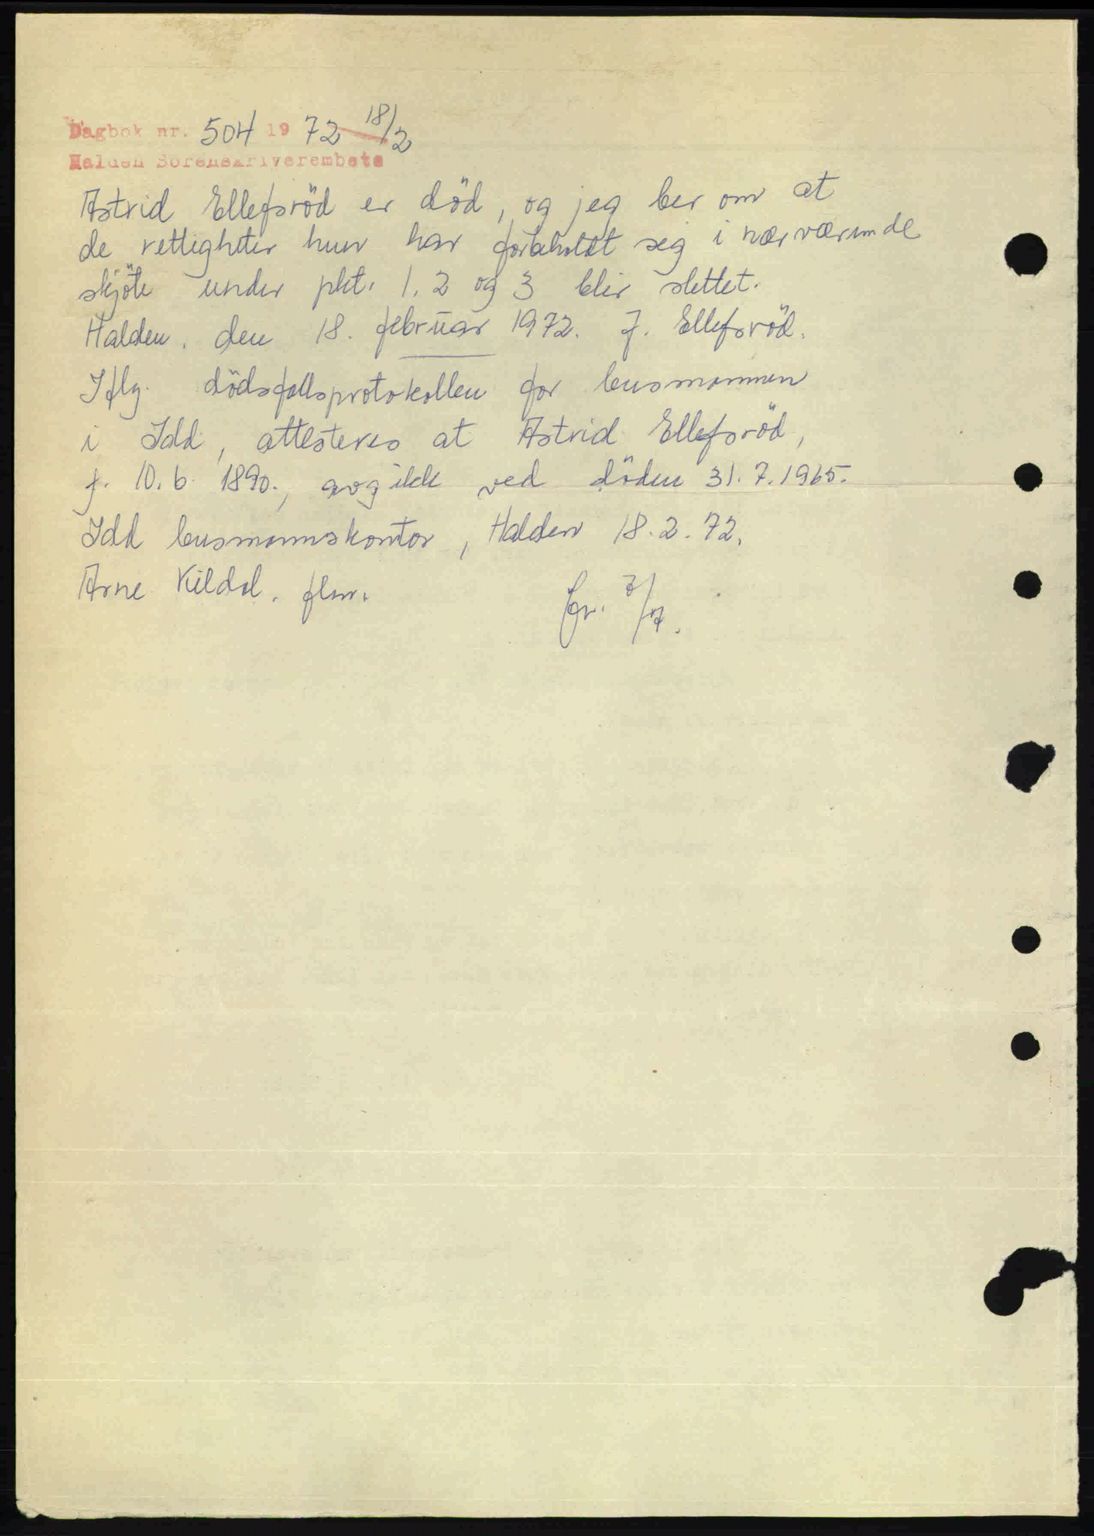 Dagbok nr. 504 1972 18/2
Halden Sorenskriverembete
Astrid Ellefsröd er död, og jeg ber om at
de rettigheter hun har forbeholdt seg i nærværende
skjöte under pkt. 1, 2 og 3 blir slettet.
Halden, den 18. februar 1972. J. Ellefsröd.
Iflg. dödsfallsprotokollen for lensmannen
i Idd, attesteres at Astrid Ellefsröd,
f. 10.6. 1890., avgikk ved döden 31.7.1965.
Idd lensmannskontor, Halden 18.2.72.
Arne Kildal. flm.